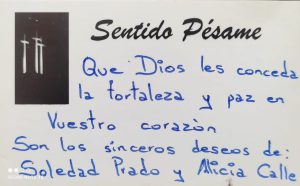 Sentido Pésame
Que Dios les conceda
la fortaleza y paz en
Vuestro corazón
Son los sínceros deseos de:
Soledad Prado y Alicia Calle